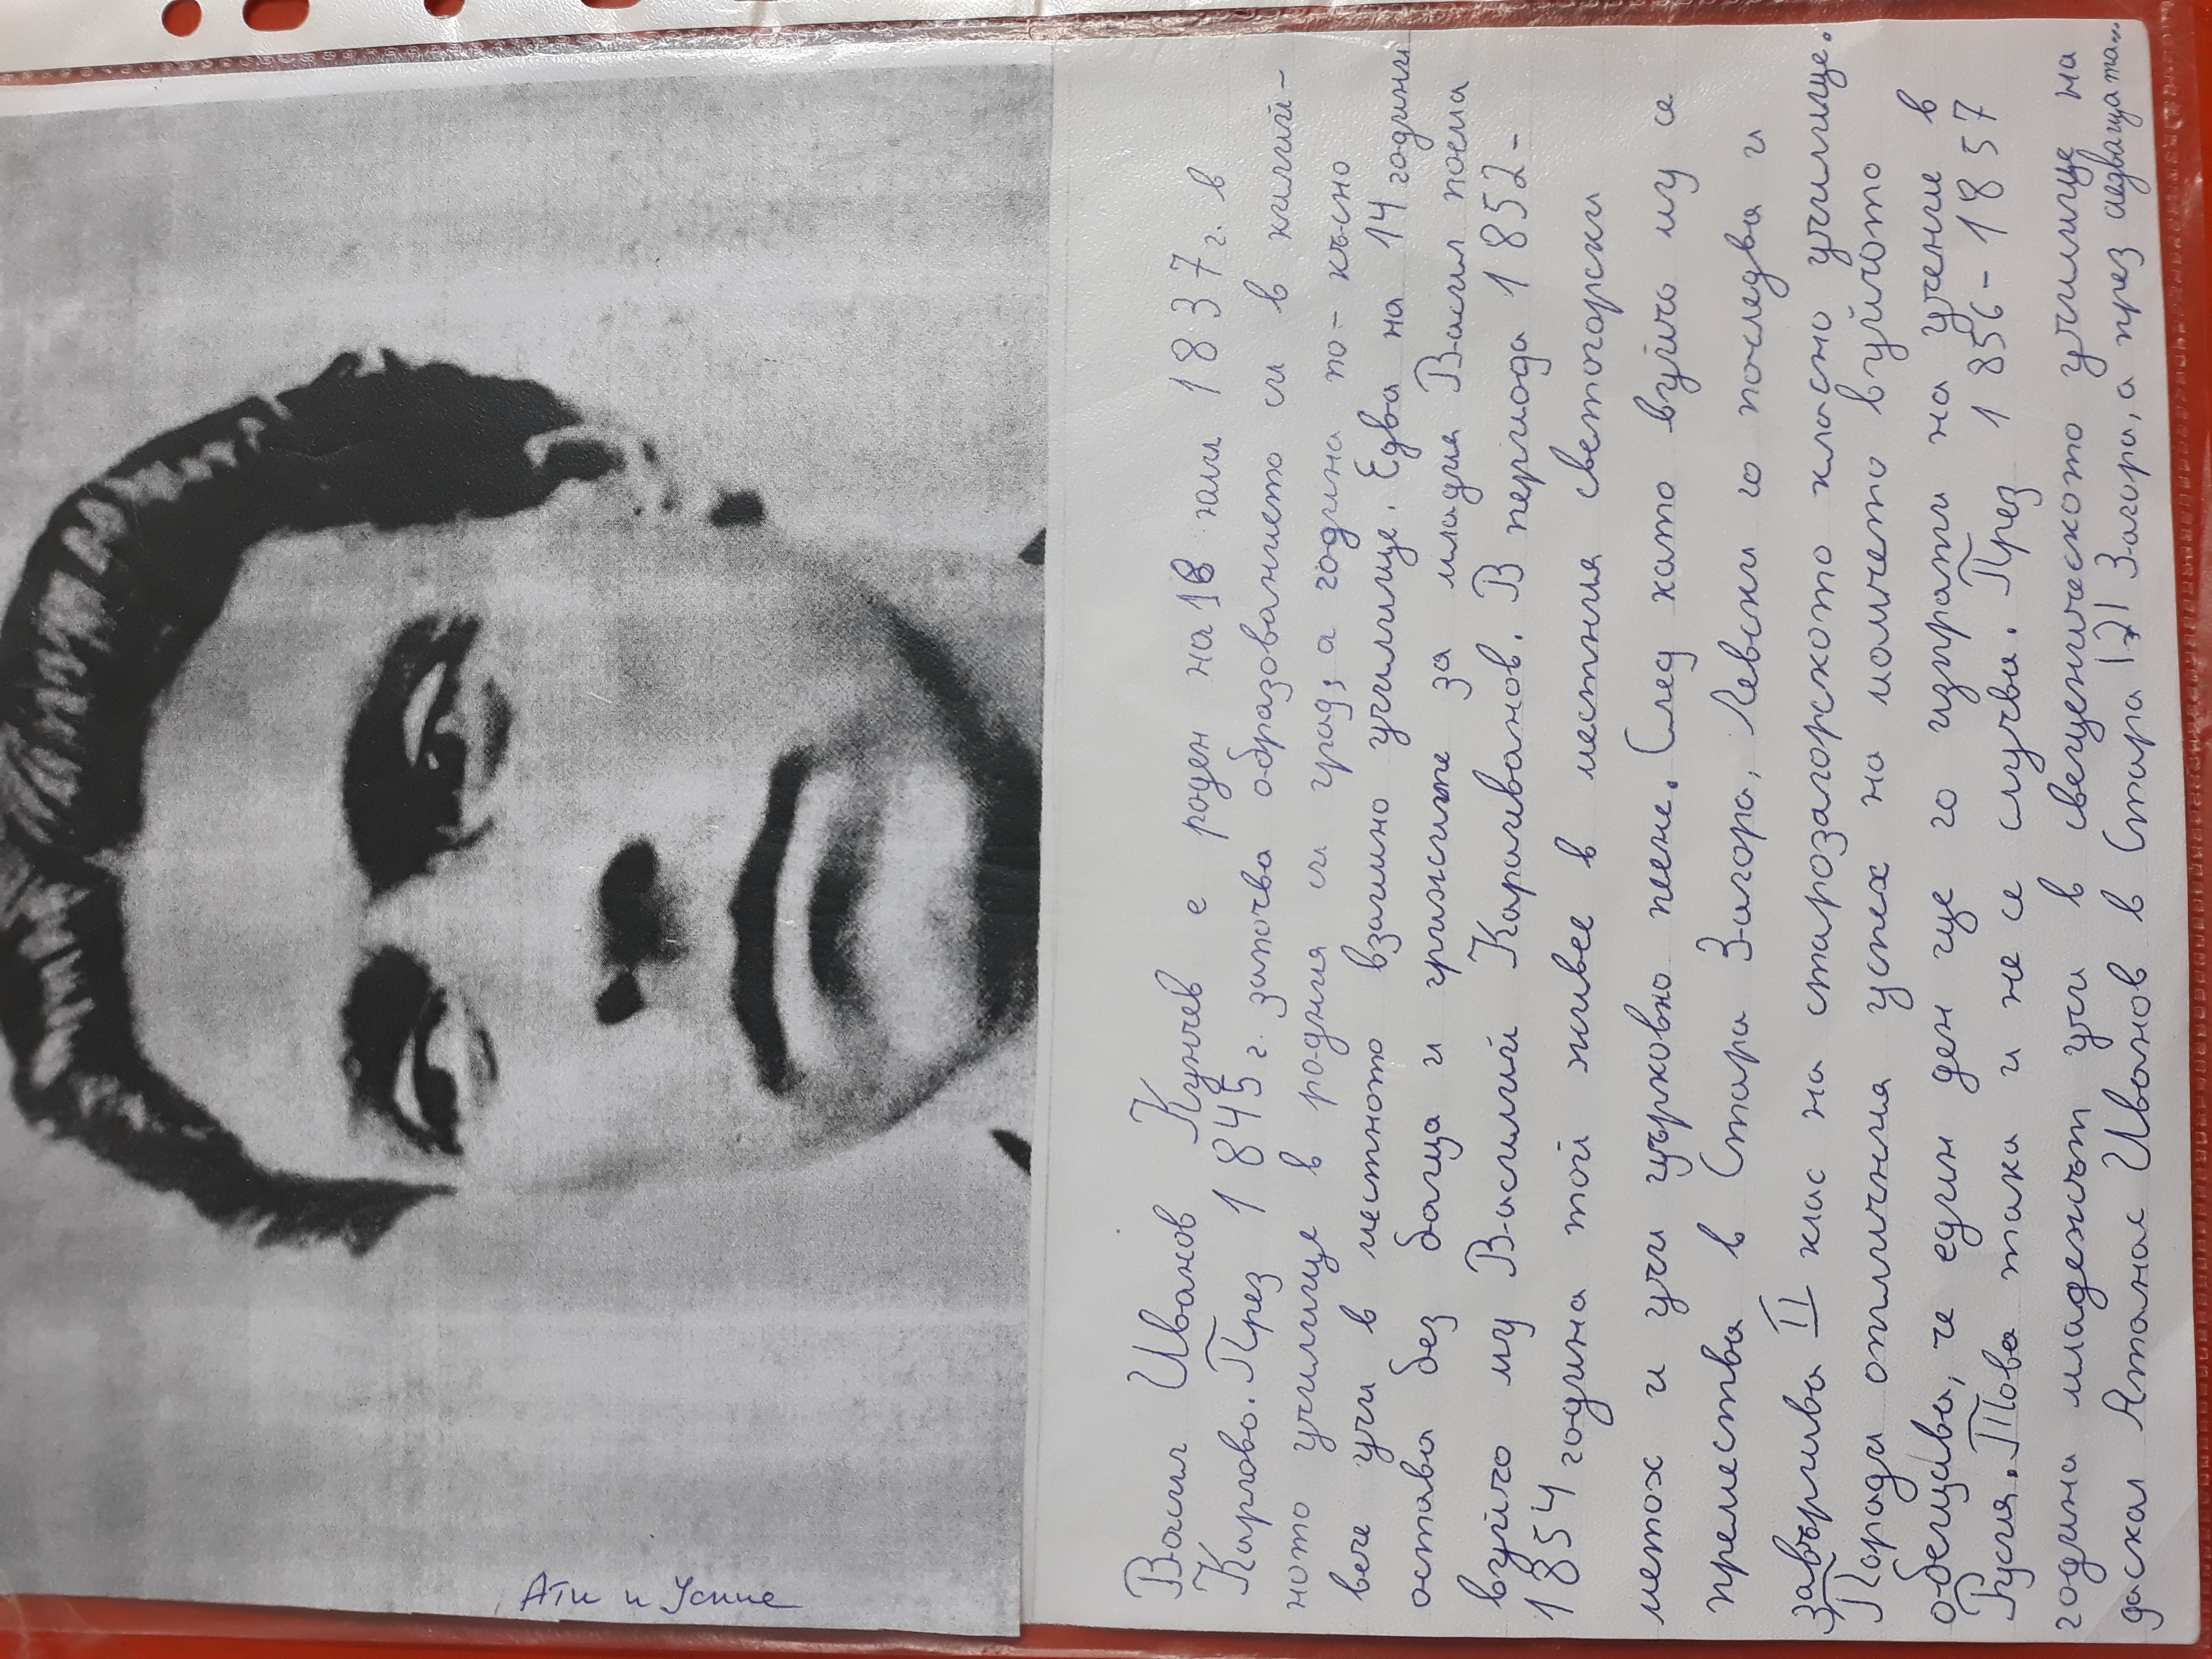 Ати и
Васил Иванов Кунчев е роден на 18 юли 1837 г. в
Карлово. През 1845 г. започва образованието си в килий-
ното училище в родния си град, а година по-късно
вече учи в местното взаимно училище. Едва на 14 години
остава без баща и грижите за младия Васил поема
вуйчо му Василий Караиванов. В периода 1852-
1854 година той живее в местния светогорски
метох и учи църковно пеене. След като вуйчо му се
премества в Стара Загора, Левски го последва и
завършва II клас на старозагорското класно училище.
Поради отличния успех на момчето вуйчото
обещава, че един ден ще го изпрати на учение в
Русия. Това така и не се случва. През 1856-1857
година младежът учи в свещеническото училище на
даскал Атанас Иванов в Стара Загора, а през следващата...